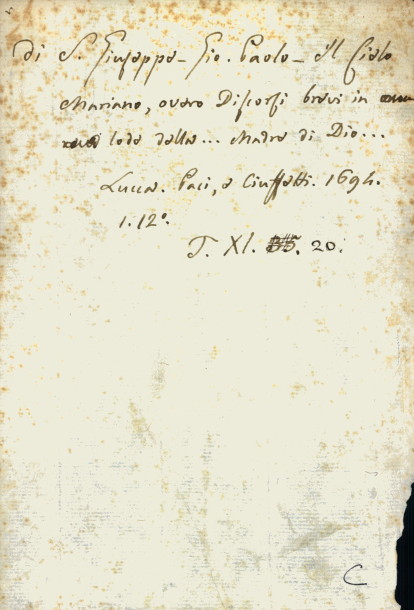 di S. Giuseppe - Gio. Paolo - il Cielo
Mariano, overo Discorsi brevi in
lode della... Madre di Dio...
Lucca. Paci, e Ciuffetti. 1694.
1. 12°.
T. XI. 20.
C